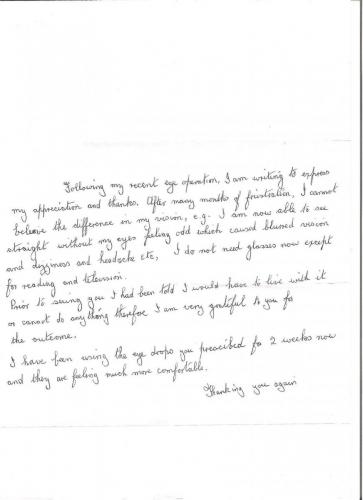 Following my recent eye operation, I am writing to express
my appreciation and thanks. After many months of frustration, I cannot
believe the difference in my vision, e.g. I am now able to see
straight without my eyes feeling odd which caused blured vision
and dizziness and headache etc, I do not need glasses now except
for reading and television.
Prior to seeing you I had been told I would have to live with it
or cannot do anything therefore I am very grateful to you for
the outcome.
I have been using the eye drops you prescibed for 2 weeks now
and they are feeling much more comfortable.
Thanking you again